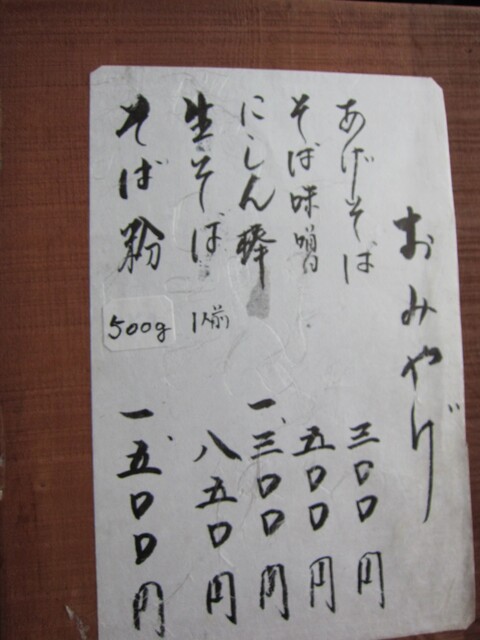 おみやげ
あげそば 三〇〇円
そば味噌 五〇〇円
にしん棒 一、三〇〇円
生そば 1人前 八五〇円
そば粉 500g 一、五〇〇円